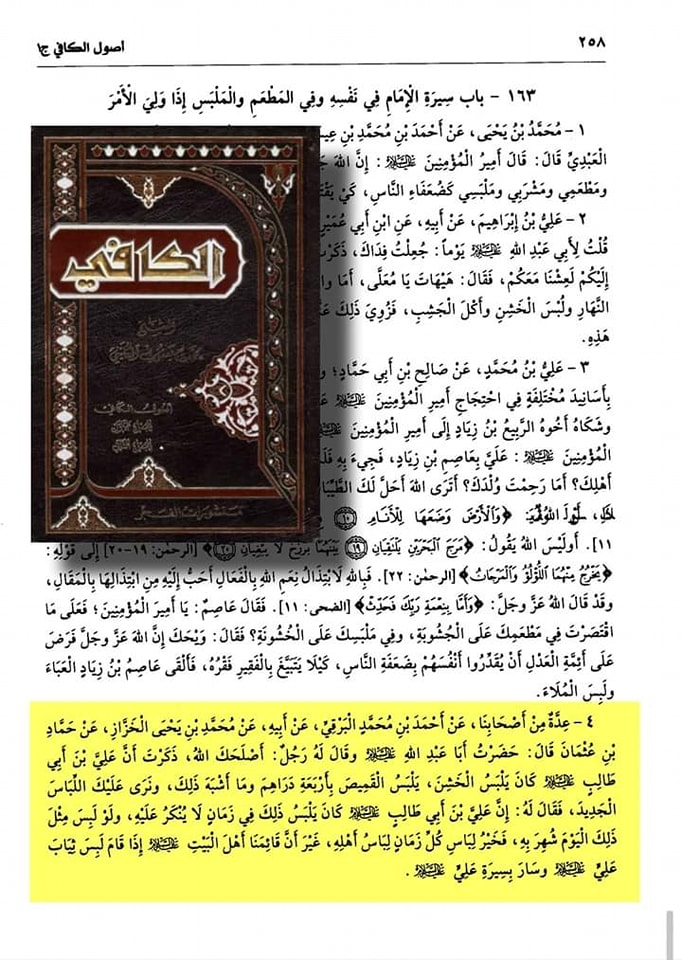 ٢٥٨
أصول الكافي ج١
١٦٣ - باب سِيرَةِ الْإِمَامِ فِي نَفْسِهِ وَفِي المَطْعَمِ وَالْمَلْبَسِ إِذَا وَلِيَ الْأَمْرَ
١ - مُحَمَّدُ بْنُ يَحْيَى، عَنْ أَحْمَدَ بْنِ مُحَمَّدِ بْنِ
الْعَبْدِيِّ قَالَ: قَالَ أَمِيرُ الْمُؤْمِنِينَ عَلَيْهِ السَّلَامُ : إِنَّ اللهَ
وَمَطْعَمِي وَمَشْرَبِي وَمَلْبَسِي كَضُعَفَاءِ النَّاسِ، كَيْ
٢ - عَلِيُّ بْنُ إِبْرَاهِيمَ، عَنْ أَبِيهِ، عَنِ ابْنِ أَبِي عُمَيْرٍ
قُلْتُ لِأَبِي عَبْدِ اللهِ عَلَيْهِ السَّلَامُ يَوْماً: جُعِلْتُ فِدَاكَ، ذَكَرْتُ
إِلَيْكُمْ لَعِشْنَا مَعَكُمْ، فَقَالَ: هَيْهَاتَ يَا مُعَلَّى، أَمَا
النَّهَارِ وَلُبْسَ الْخَشِنِ وَأَكْلَ الْجَشِبِ، فَزُوِيَ ذَلِكَ
هَذِهِ.
٣ - عَلِيُّ بْنُ مُحَمَّدٍ، عَنْ صَالِحِ بْنِ أَبِي حَمَّادٍ؛
بِأَسَانِيدَ مُخْتَلِفَةٍ فِي احْتِجَاجِ أَمِيرِ الْمُؤْمِنِينَ عَلَيْهِ السَّلَامُ
وَشَكَاهُ أَخُوهُ الرَّبِيعُ بْنُ زِيَادٍ إِلَى أَمِيرِ الْمُؤْمِنِينَ
الْمُؤْمِنِينَ عَلَيْهِ السَّلَامُ : عَلَيَّ بِعَاصِمِ بْنِ زِيَادٍ، فَجِيءَ بِهِ
أَهْلِكَ؟ أَمَا رَحِمْتَ وُلْدَكَ؟ أَتَرَى اللهَ أَحَلَّ لَكَ
﴿وَٱلْأَرْضَ وَضَعَهَا لِلْأَنَامِ ١٠
١١]. أَوَلَيْسَ اللهُ يَقُولُ: ﴿مَرَجَ ٱلْبَحْرَيْنِ يَلْتَقِيَانِ ١٩ بَيْنَهُمَا بَرْزَخٌ لَا يَبْغِيَانِ ٢٠﴾ [الرحمن: ١٩-٢٠] إِلَى قَوْلِهِ:
﴿يَخْرُجُ مِنْهُمَا ٱللُّؤْلُؤُ وَٱلْمَرْجَانُ﴾ [الرحمن: ٢٢]. فَبِاللهِ لَابْتِذَالُ نِعَمِ اللهِ بِالْفَعَالِ أَحَبُّ إِلَيْهِ مِنِ ابْتِذَالِهَا بِالْمَقَالِ،
وَقَدْ قَالَ اللهُ عَزَّ وَجَلَّ: ﴿وَأَمَّا بِنِعْمَةِ رَبِّكَ فَحَدِّثْ﴾ [الضحى: ١١]. فَقَالَ عَاصِمٌ: يَا أَمِيرَ الْمُؤْمِنِينَ؛ فَعَلَى مَا
اقْتَصَرْتَ فِي مَطْعَمِكَ عَلَى الْجُشُوبَةِ، وَفِي مَلْبَسِكَ عَلَى الْخُشُونَةِ؟ فَقَالَ: وَيْحَكَ إِنَّ اللهَ عَزَّ وَجَلَّ فَرَضَ
عَلَى أَئِمَّةِ الْعَدْلِ أَنْ يُقَدِّرُوا أَنْفُسَهُمْ بِضَعَفَةِ النَّاسِ، كَيْلَا يَتَبَيَّغَ بِالْفَقِيرِ فَقْرُهُ، فَأَلْقَى عَاصِمُ بْنُ زِيَادٍ الْعَبَاءَ
وَلَبِسَ الْمُلَاءَ.
٤ - عِدَّةٌ مِنْ أَصْحَابِنَا، عَنْ أَحْمَدَ بْنِ مُحَمَّدٍ الْبَرْقِيِّ، عَنْ أَبِيهِ، عَنْ مُحَمَّدِ بْنِ يَحْيَى الْخَزَّازِ، عَنْ حَمَّادِ
بْنِ عُثْمَانَ قَالَ: حَضَرْتُ أَبَا عَبْدِ اللهِ عَلَيْهِ السَّلَامُ وَقَالَ لَهُ رَجُلٌ: أَصْلَحَكَ اللهُ، ذَكَرْتَ أَنَّ عَلِيَّ بْنَ أَبِي
طَالِبٍ عَلَيْهِ السَّلَامُ كَانَ يَلْبَسُ الْخَشِنَ، يَلْبَسُ الْقَمِيصَ بِأَرْبَعَةِ دَرَاهِمَ وَمَا أَشْبَهَ ذَلِكَ، وَنَرَى عَلَيْكَ اللِّبَاسَ
الْجَدِيدَ، فَقَالَ لَهُ: إِنَّ عَلِيَّ بْنَ أَبِي طَالِبٍ عَلَيْهِ السَّلَامُ كَانَ يَلْبَسُ ذَلِكَ فِي زَمَانٍ لَا يُنْكَرُ عَلَيْهِ، وَلَوْ لَبِسَ مِثْلَ
ذَلِكَ الْيَوْمَ شُهِرَ بِهِ، فَخَيْرُ لِبَاسِ كُلِّ زَمَانٍ لِبَاسُ أَهْلِهِ، غَيْرَ أَنَّ قَائِمَنَا أَهْلَ الْبَيْتِ عَلَيْهِ السَّلَامُ إِذَا قَامَ لَبِسَ ثِيَابَ
عَلِيٍّ عَلَيْهِ السَّلَامُ وَسَارَ بِسِيرَةِ عَلِيٍّ عَلَيْهِ السَّلَامُ .
الكافي
منشورات الفجر